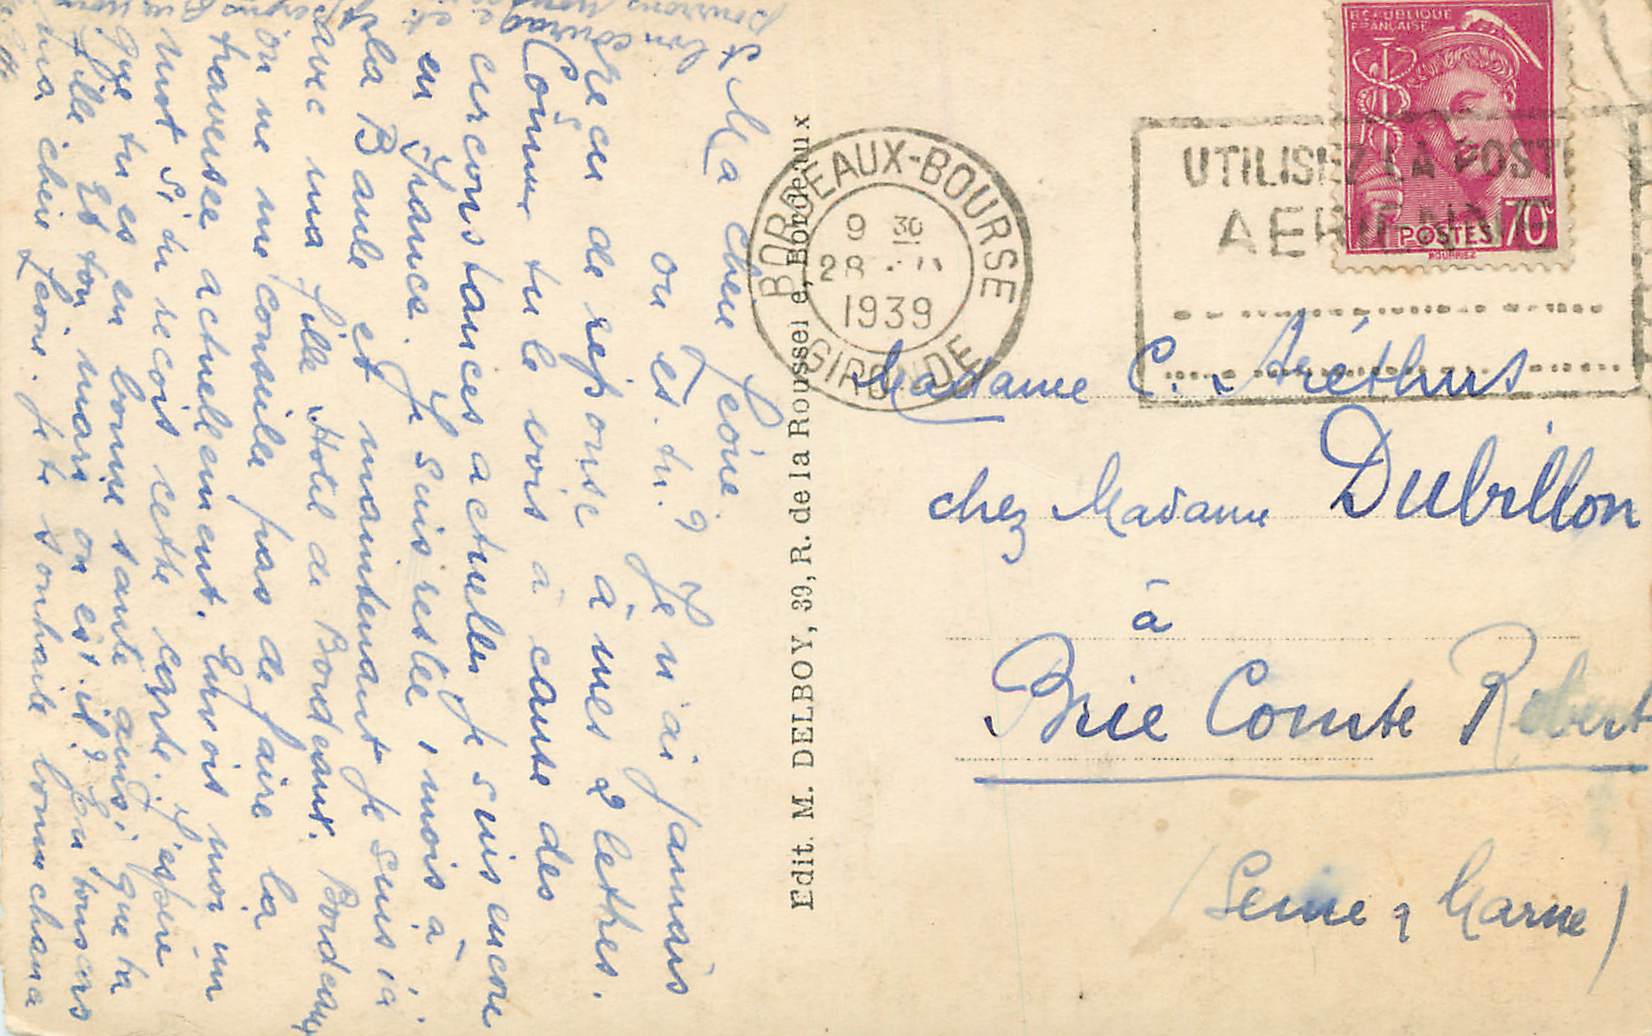 Ma chère Léone,
ou es-tu ? Je n'ai jamais
reçu de reponse à mes 2 lettres.
Comme tu le vois à cause des
circonstances actuelles je suis encore
en France. Je suis restée 1 mois à
la Baule et maintenant je suis ici
avec ma fille Hotel de Bordeaux. Bordeaux
on ne me conseille pas de faire la
traversée actuellement. Envois moi un
mot si tu recois cette carte. J'espère
que tu es en bonne santé ainsi que ta
fille. Et ton mari ou est-il ? En tous cas
ma chère Léone. je te souhaite bonne chance
et bon courage
pouvons nous
Edit. M. DELBOY, 39, R. de la Rousselle, Bordeaux
REPUBLIQUE
FRANÇAISE
POSTES 70c
HOURRIEZ
BORDEAUX-BOURSE
9 30
28
1939
GIRONDE
UTILISEZ LA POSTE
AERIENNE
Madame C. Aréthus
chez Madame Dubillon
à
Brie Comte Robert
(Seine & Marne)